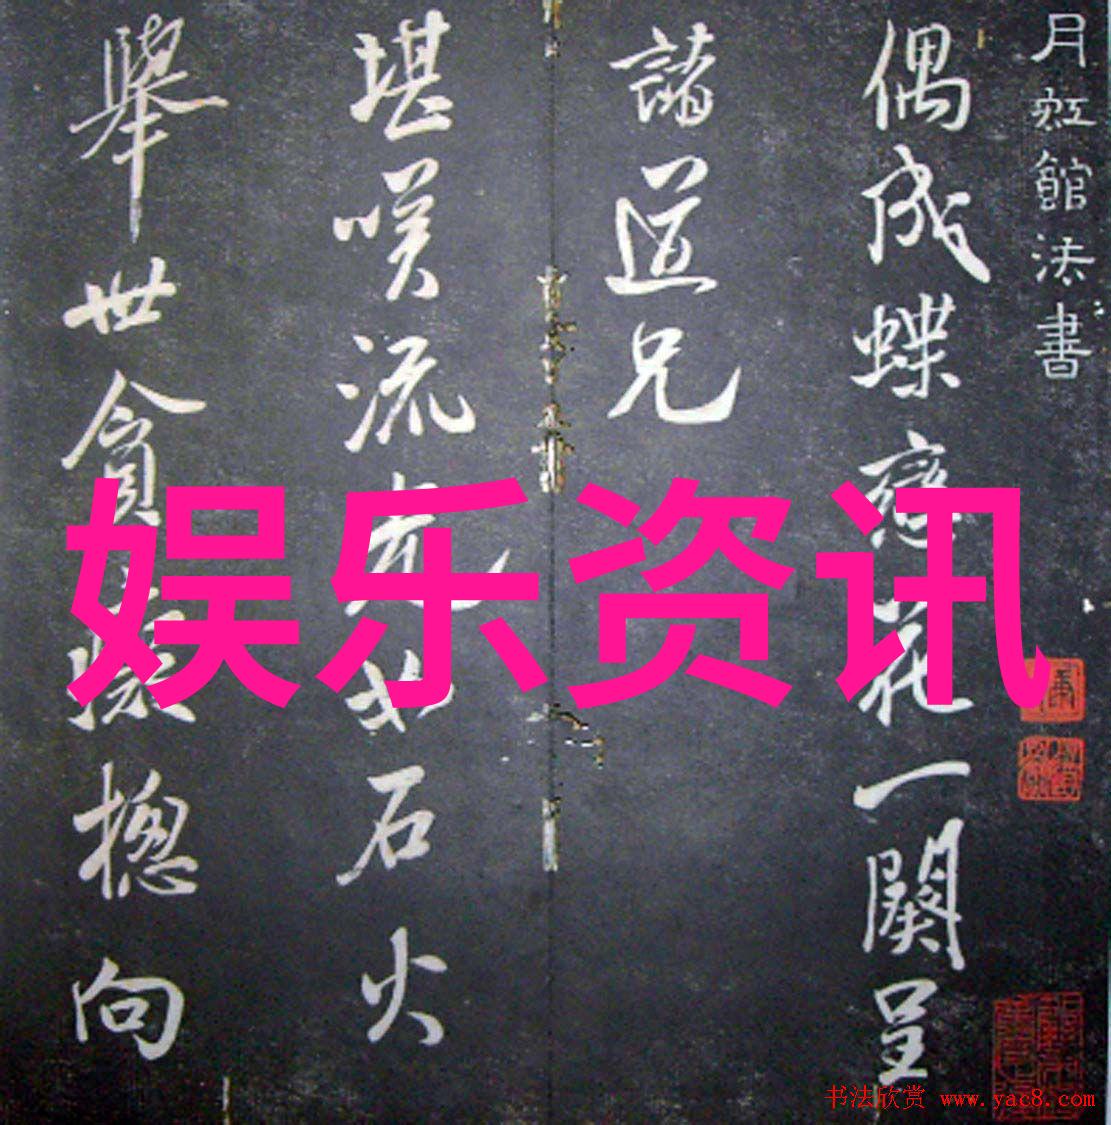 月虹館法書
偶成蝶戀花一闋呈
諸道兄
堪嘆流光如石火
舉世貪嗔捴向
娱乐资讯
书法欣赏 www.yac8.com